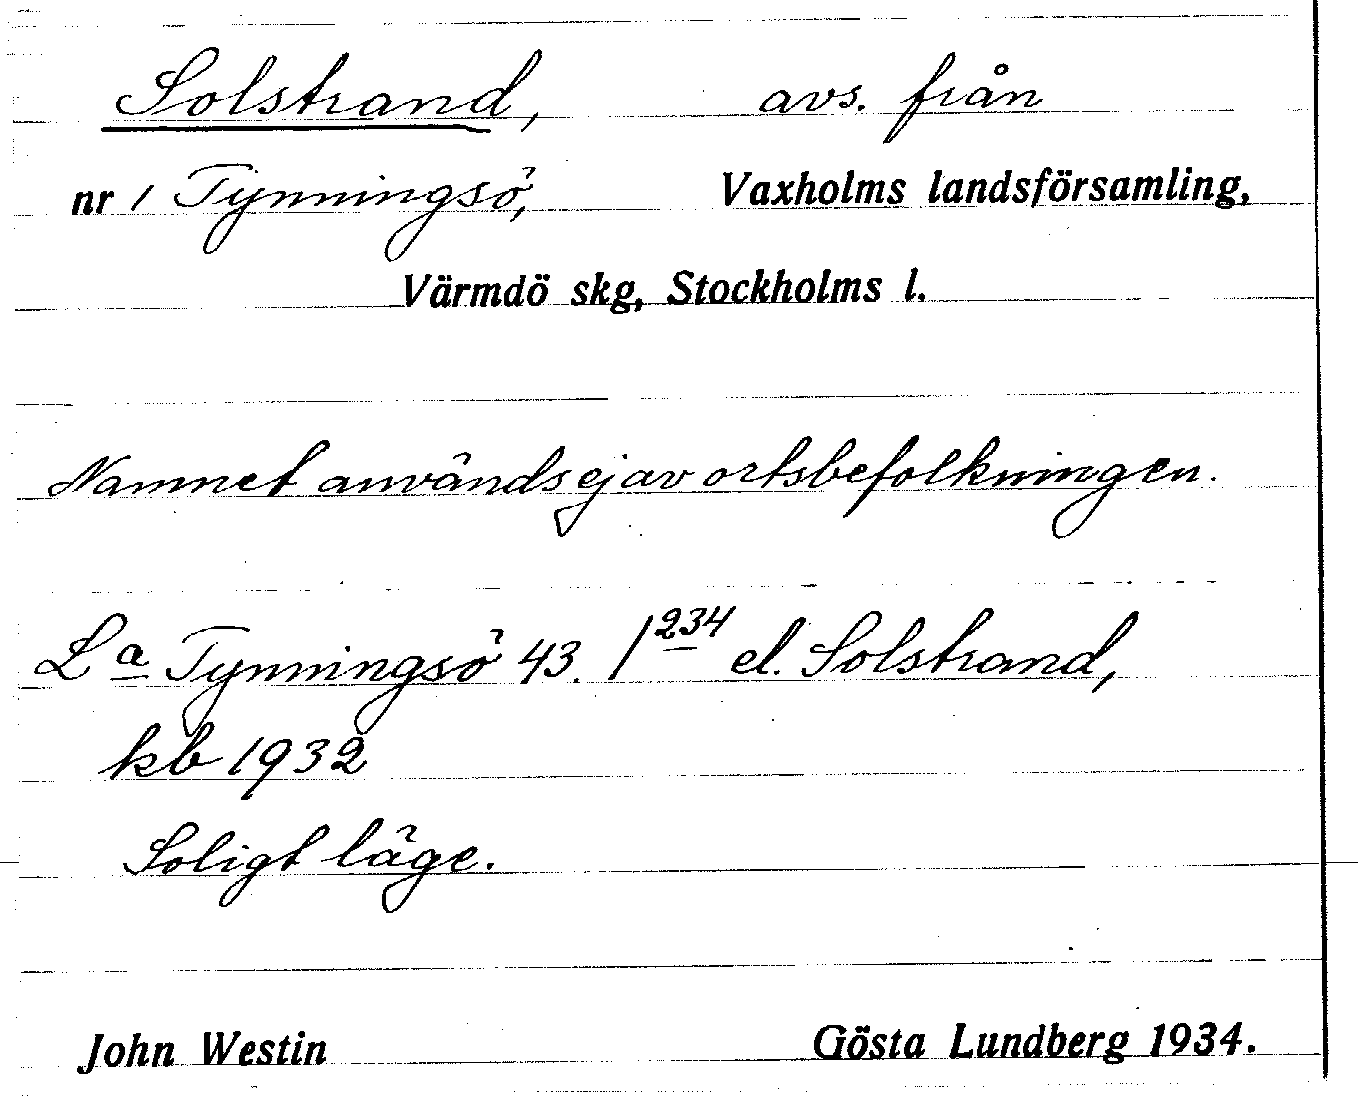 Solstrand, avs. från
nr 1 Tynningsö, Vaxholms landsförsamling,
Värmdö skg, Stockholms l.
Namnet användes ej av ortsbefolkningen.
La Tynningsö 43. 1 234 el. Solstrand,
kb 1932
Soligt läge.
John Westin Gösta Lundberg 1934.